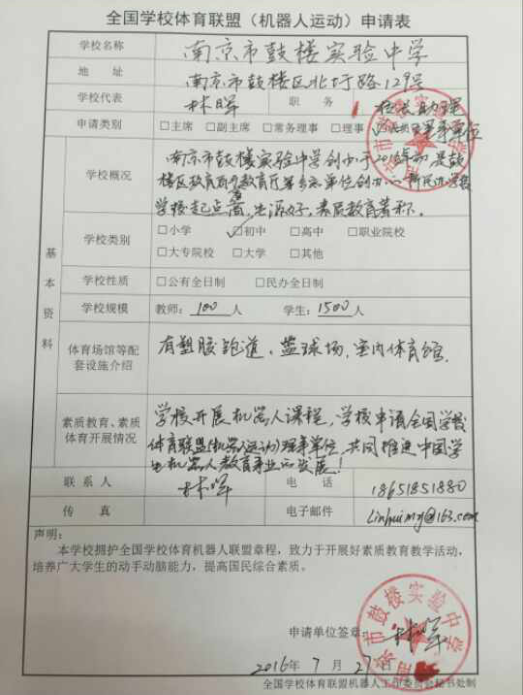 全国学校体育联盟（机器人运动）申请表
学校名称 南京市鼓楼实验中学
地 址 南京市鼓楼区北圩路129号
学校代表 林晖 职 务 校长助理
申请类别 □主席 □副主席 □常务理事 □理事 理事单位
学校概况
南京市鼓楼实验中学创办于2016年,是鼓
楼区教育局 教育厅 单位创办
学校起点高、生源好、素质教育著称。
基本资料
学校类别 □小学 ☑初中 □高中 □职业院校
□大专院校 □大学 □其他
学校性质 □公有全日制 □民办全日制
学校规模 教师：100人 学生：1500人
体育场馆等配套设施介绍
有塑胶跑道、篮球场,室内体育馆.
素质教育、素质体育开展情况
学校开展机器人课程,学校申请全国学校
体育联盟(机器人运动)理事单位,共同推进中国学
生机器人教育事业的发展!
联 系 人 林晖 电 话 18651851880
传 真 电子邮件 Linhuimg@163.com
声明：
本学校拥护全国学校体育机器人联盟章程，致力于开展好素质教育教学活动，
培养广大学生的动手动脑能力，提高国民综合素质。
申请单位签章： 林晖
南京市鼓楼实验中学
2016年 7月 27日
全国学校体育联盟机器人工作委员会秘书处制